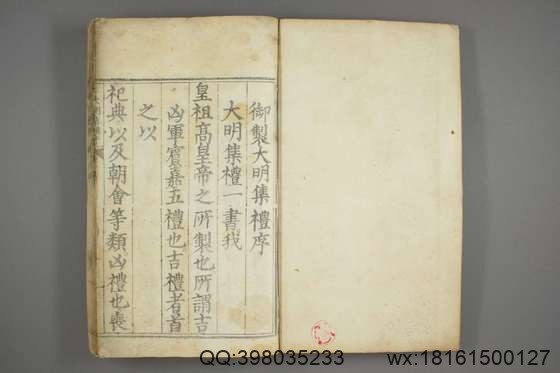 御製大明集禮序
大明集禮一書我
皇祖高皇帝之所製也所謂吉
凶軍賓嘉五禮也吉禮者首
之以
祀典以及朝會等類凶禮也喪
QQ:398035233
wx:18161500127